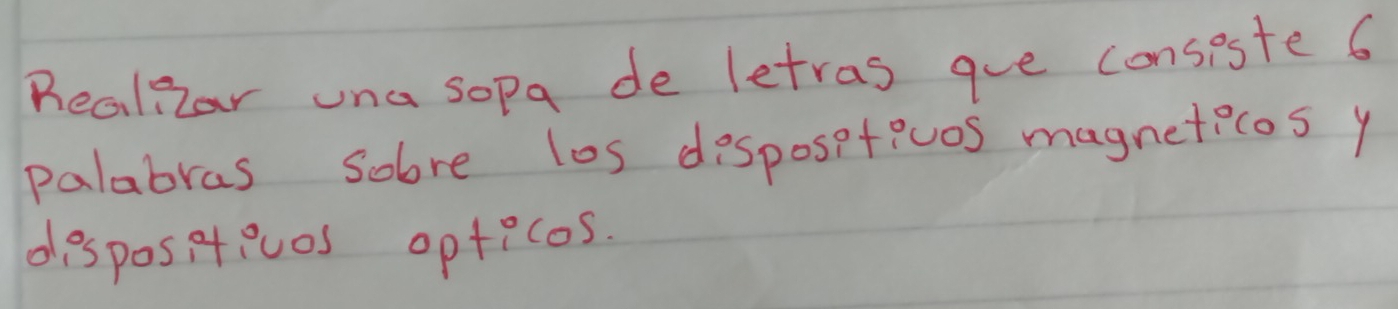 Realizar una sopa de letras que consiste 6
palabras sobre los dispositivos magneticos y
dispositivos opticos.